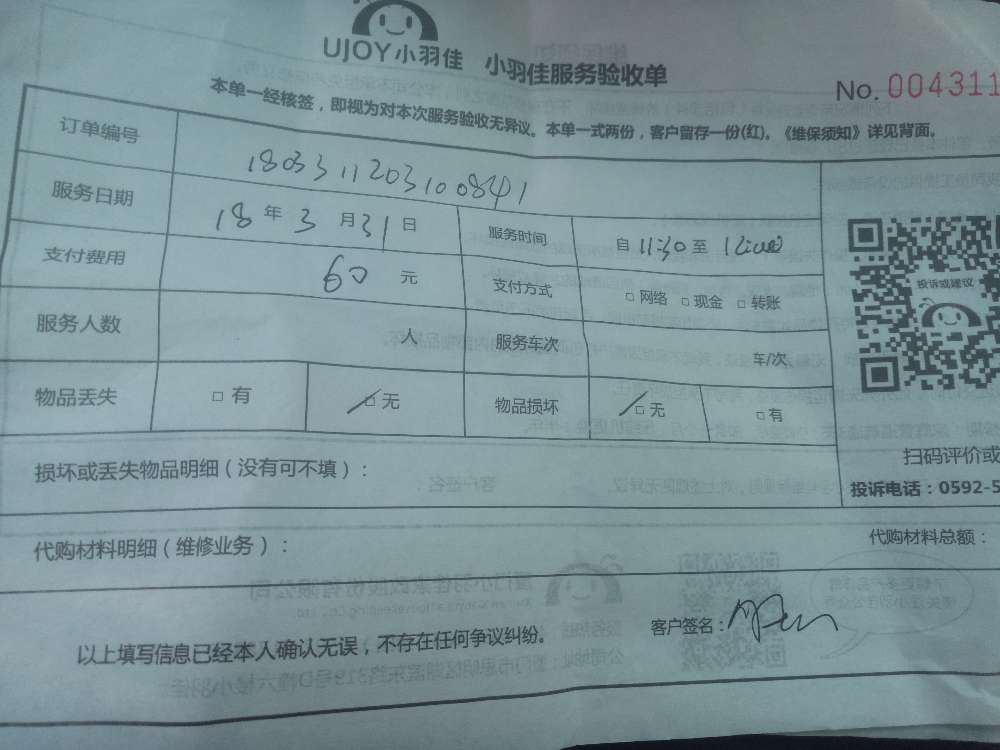 UJOY小羽佳 小羽佳服务验收单
No. 004311
本单一经核签，即视为对本次服务验收无异议。本单一式两份，客户留存一份(红)。《维保须知》详见背面。
订单编号 1803311203100841
服务日期 18 年 3 月 31 日 服务时间 自 11:30 至
支付费用 60 元 支付方式 □ 网络 □ 现金 □ 转账
投诉或建议
服务人数 人 服务车次 车/次
物品丢失 □ 有 □ 无 物品损坏 □ 无 □ 有
损坏或丢失物品明细（没有可不填）：
扫码评价或
投诉电话：0592-5
代购材料明细（维修业务）： 代购材料总额：
以上填写信息已经本人确认无误，不存在任何争议纠纷。 客户签名：